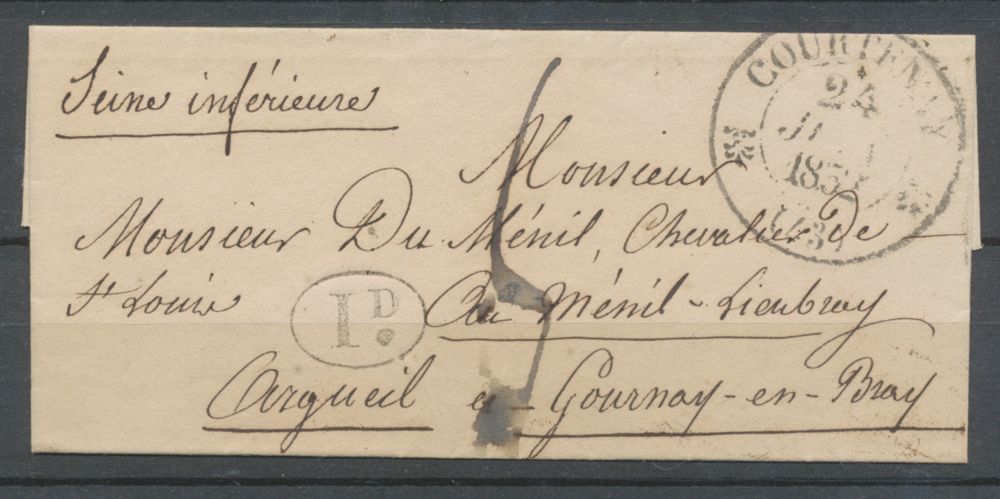 Seine inférieure
COURTENAY
24
(43)
Monsieur
Monsieur Du Ménil, Chevalier de
St Louis
1D.
Au Ménil-Lieubray
Argueil
Gournay-en-Bray